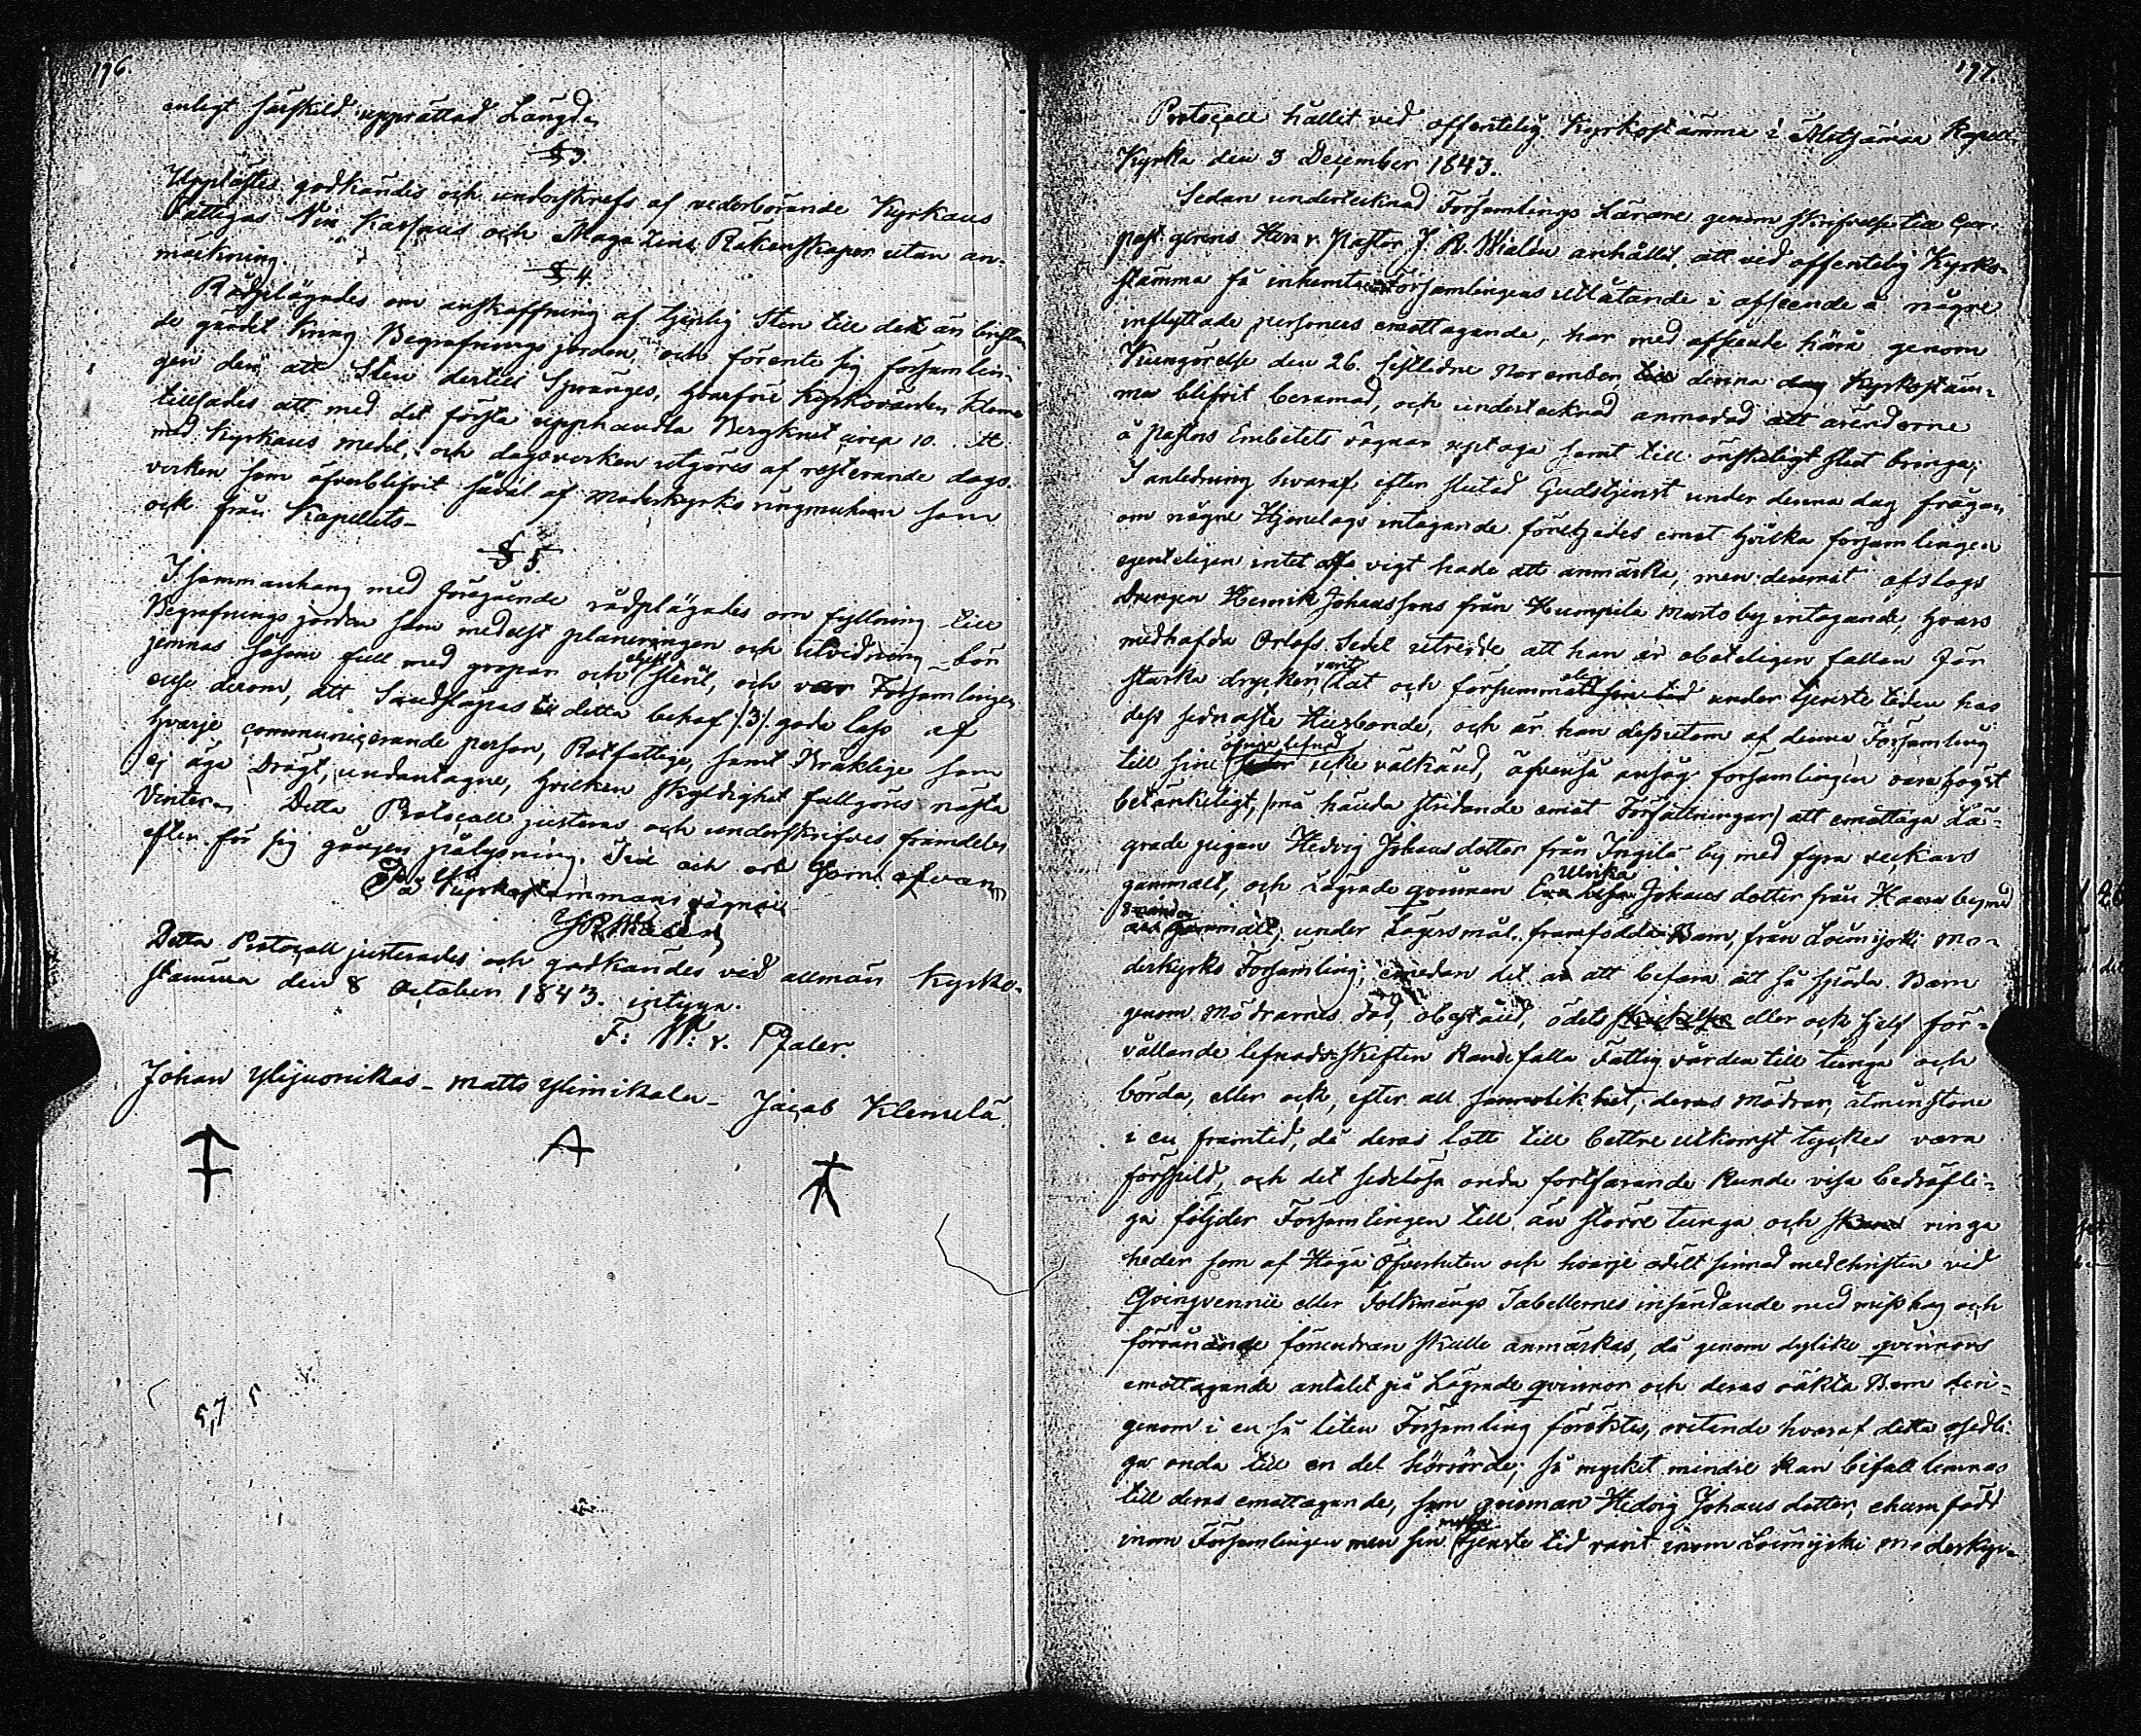 196.
enligt särskild upprättad Längd.
§ 3.
Upplästes godkändes och underskrefs af vederbörande Kyrkans
Fattigas Vin Kassans och Magazins Räkenskaper utan an-
märkning.
§ 4.
Rådplägades om anskaffning af tjenlig Sten till det än bristan
de gärdet kring Begrafnings jorden, och förente sig församlin-
gen den att Sten dertill spränges, hvarföre Kyrkovärden Kleme
tillsades att med det första upphandla Bergkrut circa 10. ℔
med Kyrkans medel, och dagsverken utgöres af resterande dags-
verken som öfverblifvit såväl af Moderkyrko ringmuren som
ock från Kapellets.
§ 5.
I sammanhang med föregående rådplägades om fyllning till
Begrafnings jorden som medelst planeringen och utvidning bör
jemnas såsom full med gropar och steril, och var Församlingen
ense derom, att Sand släpas til detta behof /: 3 :/ goda lass af
hvarje communicerande person, Rotfattige, samt Bräklige som
ej äga Drägt, undantagne, hvilken skyldighet fullgöres nästa
Vinter. Detta Protocoll justeras och underskrifves framdeles
efter för sig gången pålysning. Tid och ort som ofvan
På Kyrkostämmans vägnar
J R Wialén
Detta Protocoll justerades och godkändes vid allmän Kyrko-
stämma den 8 October 1843. intyga.
F: W: v. Pfaler.
Johan Ylijuonikas - Matts Ylimikola - Jacob Klemelä
197.
Protocoll hållit vid offentelig Kyrkostämma i Metsämaa Kapell
Kyrka den 3 December 1843.
Sedan undertecknad Församlings Lärare genom skrifvelse till Cur.
past. gerens Herr v. Pastor J. R. Wialén anhållet, att vid offentelig Kyrko-
stämma få inhemta Församlingens Utlåtande i afseende å någre
inflyttade personers emottagande, har med afseende härå genom
Kungörelse den 26. sistledne November denna dag Kyrkostäm-
ma blifvit beramad, och undertecknad anmodad att ärenderne
å Pastors Embetets vägnar uptaga samt till önskeligt slut bringa;
I anledning hvaraf efter slutad Gudstjenst under denna dag frågan
om någre Hjonelags intagande företogs emot hvilka församlingen
egenteligen intet af vigt hade att anmärka, men deremot afslogs
Drengen Henrik Johanssons från Humppila Murto by intagande, hvars
medhafda Orlofs Sedel utvisde att han är oboteligen fallen för
starka drycker, varit Lat och försummelig under tjenste tiden hos
dess sednaste Husbonde, och är han dessutom af denna Församling
till sine öfrige lefnad icke välkänd, äfvenså ansåg församlingen vara högst
betänkeligt, (må hända stridande emot Författningar) att emottaga Lä-
grade pigan Hedvig Johans dotter från Ingilä by med fyra veckors
gammalt, och Lägrade qvinnan Ulrika Johans dotter från Haara by med
gammalt, under Lägersmål framfödda Barn, från Loimijoki Mo-
derkyrko Församling; emedan det är att befara att så spöda Barn
genom Mödrarnes död, obestånd, ödets eller och sjelf för-
vållande lefnads skiften kunde falla Fattig vården till tunga och
börda, eller ock, efter all sannolikhet, deras Mödrar, åtminstone
i en framtid, då deras lott till bettre utkomst tyckes vara
förspild, och det sedelösa onda fortfarande kunde visa bedröfli-
ga följder Församlingen till än större tunga och ringa
heder som af Höga Öfverheten och hvarje ädelt sinnad medchristen vid
Qvinqvennii eller Folkmängs Tabellernes insändande med misshag och
förvånande förundran skulle anmärkas, då genom dylike qvinnors
emottagande antalet på Lägrade qvinnor och deras oäkta Barn deri-
genom i en så liten Församling förökstes, ovetande hvaraf detta osedli-
ga onda till en del härrörde; så mycket mindre kan bifall lemnas
till deras emottagande, som qvinnan Hedvig Johans dotter, ehuru född
inom Församlingen men sin mesta tjenste tid varit inom Loimijoki Moderkyr-